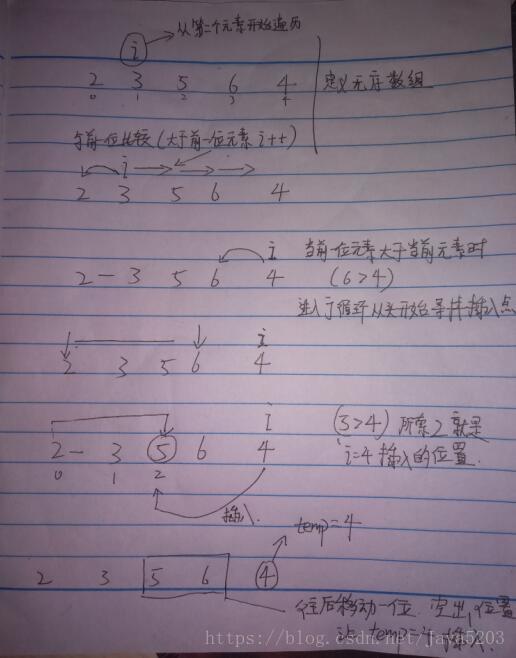 从第二个元素开始遍历
i
2 3 5 6 4
0 1 2 3 4
定义无序数组
与前一位比较(大于前一位元素 i++)
i
2 3 5 6 4
i
2 - 3 5 6 4
当前一位元素大于当前元素时
(6>4)
进入了循环从头开始寻找插入点
i
2 3 5 6 4
i
2 - 3 5 6 4
0 1 2
(5>4) 所索2就是
i=4插入的位置.
插入.
temp=4
2 3 5 6 4
往后移动一位. 空出位置
temp=4 插入.
https://blog.csdn.net/java5203